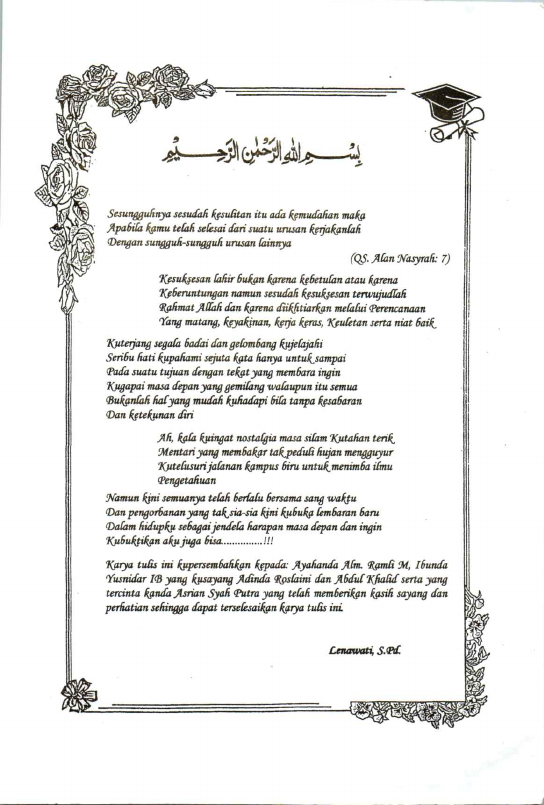 بِسْمِ اللهِ الرَّحْمٰنِ الرَّحِيْمِ
Sesungguhnya sesudah kesulitan itu ada kemudahan maka
Apabila kamu telah selesai dari suatu urusan kerjakanlah
Dengan sungguh-sungguh urusan lainnya
(QS. Alan Nasyrah: 7)
Kesuksesan lahir bukan karena kebetulan atau karena
Keberuntungan namun sesudah kesuksesan terwujudlah
Rahmat Allah dan karena diikhtiarkan melalui Perencanaan
Yang matang, keyakinan, kerja keras, Keuletan serta niat baik
Kuterjang segala badai dan gelombang kujelajahi
Seribu hati kupahami sejuta kata hanya untuk sampai
Pada suatu tujuan dengan tekat yang membara ingin
Kugapai masa depan yang gemilang walaupun itu semua
Bukanlah hal yang mudah kuhadapi bila tanpa kesabaran
Dan ketekunan diri
Ah, kala kuingat nostalgia masa silam Kutahan terik
Mentari yang membakar tak peduli hujan mengguyur
Kutelusuri jalanan kampus biru untuk menimba ilmu
Pengetahuan
Namun kini semuanya telah berlalu bersama sang waktu
Dan pengorbanan yang tak sia-sia kini kubuka lembaran baru
Dalam hidupku sebagai jendela harapan masa depan dan ingin
Kubuktikan aku juga bisa...............!!!
Karya tulis ini kupersembahkan kepada: Ayahanda Alm. Ramli M, Ibunda
Yusnidar IB yang kusayang Adinda Roslaini dan Abdul Khalid serta yang
tercinta kanda Asrian Syah Putra yang telah memberikan kasih sayang dan
perhatian sehingga dapat terselesaikan karya tulis ini.
Lenawati, S.Pd.